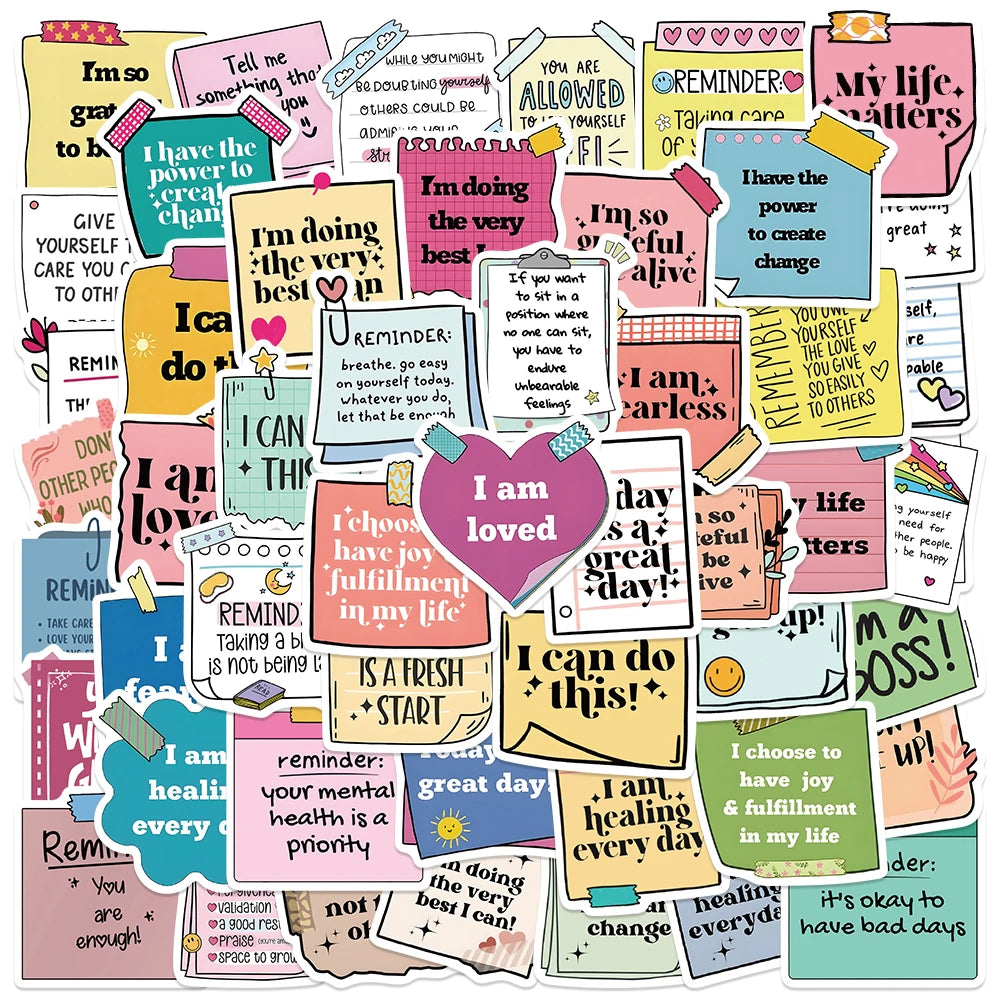 I'm so
to b
Tell me
something tha
you
WHILE YOU MIGHT
BE DOUBTING yourself
OTHERS COULD BE
ADMIRING YOUR
YOU ARE
ALLOWED
YOURSELF
REMINDER:
Taking care
of
My life
matters
I have the
power to
I'm doing
the very
best I
I'm so
grateful
alive
I have the
power
to create
change
great
GIVE
YOURSELF
CARE YOU
TO
I'm doing
the very
best
If you want
to sit in a
position where
no one can sit,
you have to
endure
unbearable
feelings
REMEMBER
YOU OWE
YOURSELF
THE LOVE
YOU GIVE
SO EASILY
TO OTHERS
I ca
do
REMINDER:
breathe. go easy
on yourself today.
whatever you do,
let that be enough
I am
I CAN
THIS
I am
I am
loved
DON'
OTHER
I choos
have joy
fulfillment
in my life
day
is a
great
day!
so
be
life
yourself
need for
other people.
be happy
TAKE CARE
LOVE YOUR
Taking a
is not being
READ
I
IS A FRESH
START
I can do
this!
up!
BOSS!
UP!
I am
every
reminder:
your mental
health is a
priority
great day!
I am
healing
every day
I choose to
have joy
& fulfillment
in my life
You
are
enough!
validation
a good
Praise
space to
not
doing
the very
best I can!
change
healing
everyda
it's okay to
have bad days